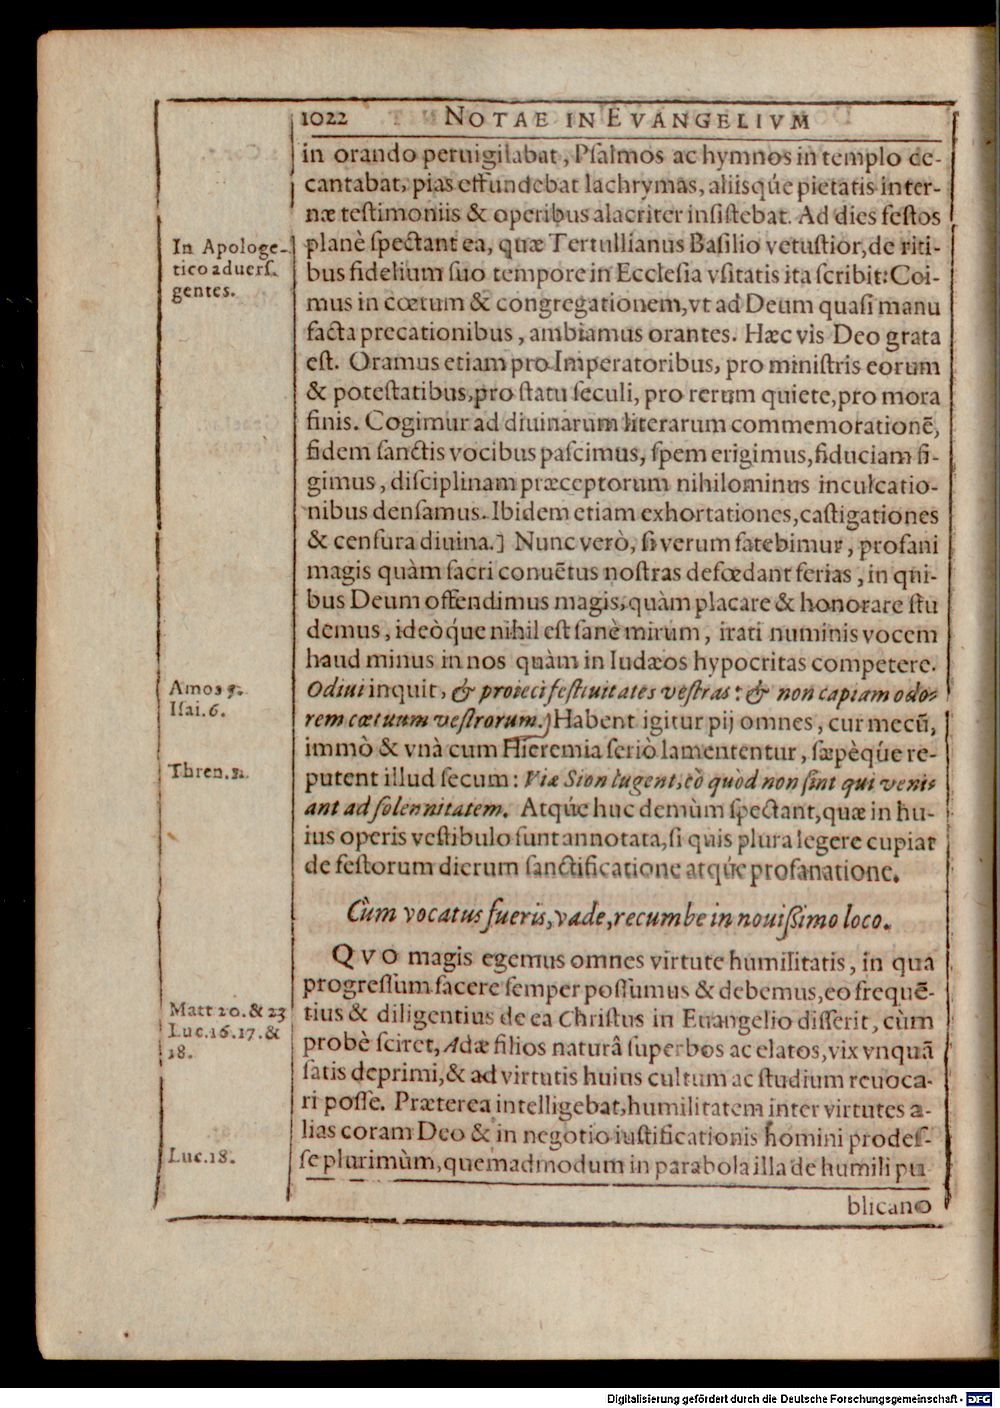 1022 NOTAE IN EVANGELIVM
in orando peruigilabat, Psalmos ac hymnos in templo de-
cantabat, pias effundebat lachrymas, aliisq́ue pietatis inter-
næ testimoniis & operibus alacriter insistebat. Ad dies festos
In Apologe-
tico aduers.
gentes.
planè spectant ea, quæ Tertullianus Basilio vetustior, de riti-
bus fidelium suo tempore in Ecclesia vsitatis ita scribit: Coi-
mus in cœtum & congregationem, vt ad Deum quasi manu
facta precationibus, ambiamus orantes. Hæc vis Deo grata
est. Oramus etiam pro Imperatoribus, pro ministris eorum
& potestatibus, pro statu seculi, pro rerum quiete, pro mora
finis. Cogimur ad diuinarum literarum commemorationē,
fidem sanctis vocibus pascimus, spem erigimus, fiduciam fi-
gimus, disciplinam præceptorum nihilominus inculcatio-
nibus densamus. Ibidem etiam exhortationes, castigationes
& censura diuina.] Nunc verò, si verum fatebimur, profani
magis quàm sacri conuētus nostras defœdant ferias, in qui-
bus Deum offendimus magis, quàm placare & honorare stu
demus, ideòq́ue nihil est sanè mirum, irati numinis vocem
haud minus in nos quàm in Iudæos hypocritas competere.
Amos 5.
Isai. 6.
Odiui inquit, & proieci festiuitates vestras: & non capiam odo-
rem cœtuum vestrorum.] Habent igitur pij omnes, cur mecū,
immò & vnà cum Hieremia seriò lamententur, sæpèq́ue re-
Thren. 1.
putent illud secum: Viæ Sion lugent, eò quòd non sint qui veni-
ant ad solennitatem. Atq́ue huc demùm spectant, quæ in hu-
ius operis vestibulo sunt annotata, si quis plura legere cupiat
de festorum dierum sanctificatione atq́ue profanatione.
Cùm vocatus fueris, vade, recumbe in nouissimo loco.
QVO magis egemus omnes virtute humilitatis, in qua
progressum facere semper possumus & debemus, eo frequē-
Matt 20. & 23
Luc. 16. 17. &
18.
tius & diligentius de ea Christus in Euangelio disserit, cùm
probè sciret, Adæ filios naturâ superbos ac elatos, vix vnquā
satis deprimi, & ad virtutis huius cultum ac studium reuoca-
ri posse. Præterea intelligebat, humilitatem inter virtutes a-
lias coram Deo & in negotio iustificationis homini prodes-
Luc. 18.
se plurimùm, quemadmodum in parabola illa de humili pu
blicano
Digitalisierung gefördert durch die Deutsche Forschungsgemeinschaft - DFG